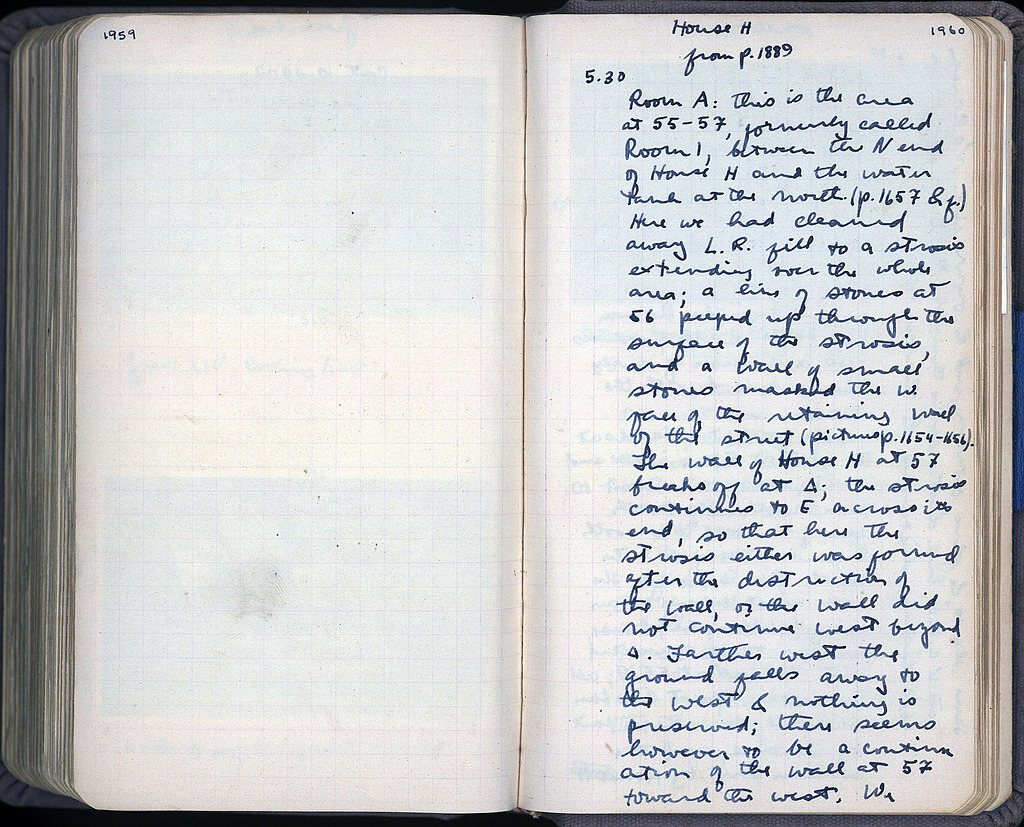 1959
1960
House H
from p. 1889
5.30
Room A: this is the area
at 55-57, formerly called
Room 1, between the N end
of House H and the water
tank at the north. (p. 1657 & f.)
Here we had cleaned
away L.R. fill to a strosis
extending over the whole
area; a line of stones at
56 peeped up through the
surface of the strosis,
and a wall of small
stones masked the W
face of the retaining wall
of the street (pictures p. 1654-1656).
The wall of House H at 57
breaks off at Δ; the strosis
continues to E, across its
end, so that here the
strosis either was formed
after the destruction of
the wall, or the wall did
not continue west beyond
Δ. Farther west the
ground falls away to
the west & nothing is
preserved; there seems
however to be a continu
ation of the wall at 57
toward the west. We